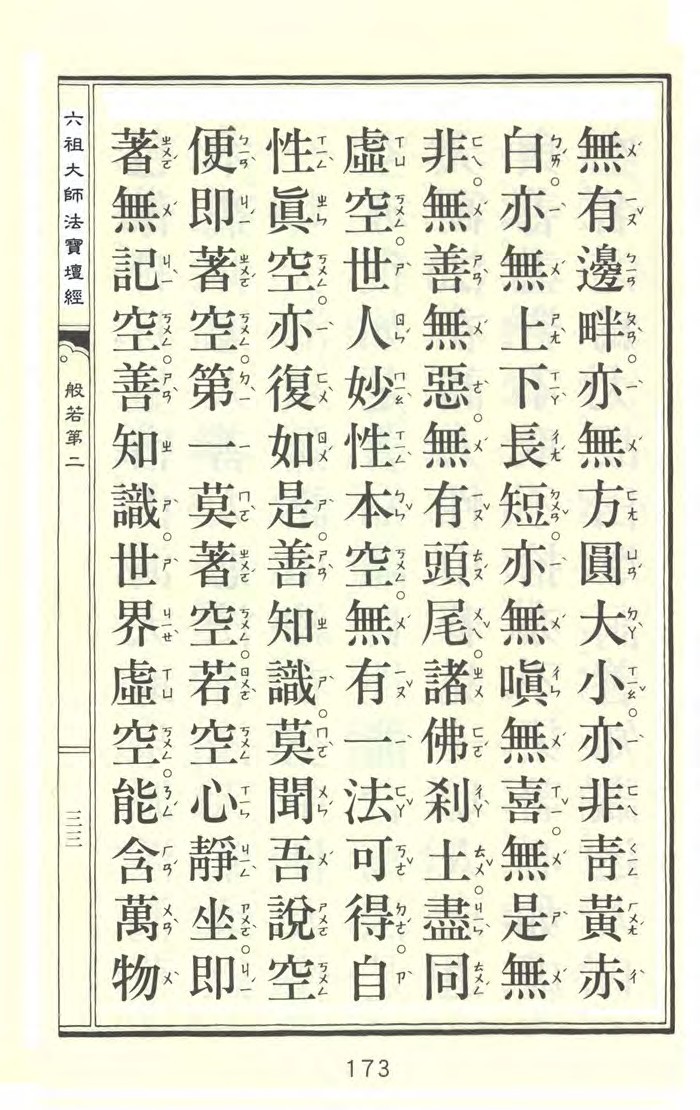 無有邊畔。亦無方圓大小。亦非靑黃赤
白。亦無上下長短。亦無嗔無喜。無是無
非。無善無惡。無有頭尾。諸佛剎土。盡同
虛空。世人妙性本空。無有一法可得。自
性眞空。亦復如是。善知識。莫聞吾說空。
便即著空。第一莫著空。若空心靜坐。即
著無記空。善知識。世界虛空。能含萬物
六祖大師法寶壇經
般若第二
三三
173